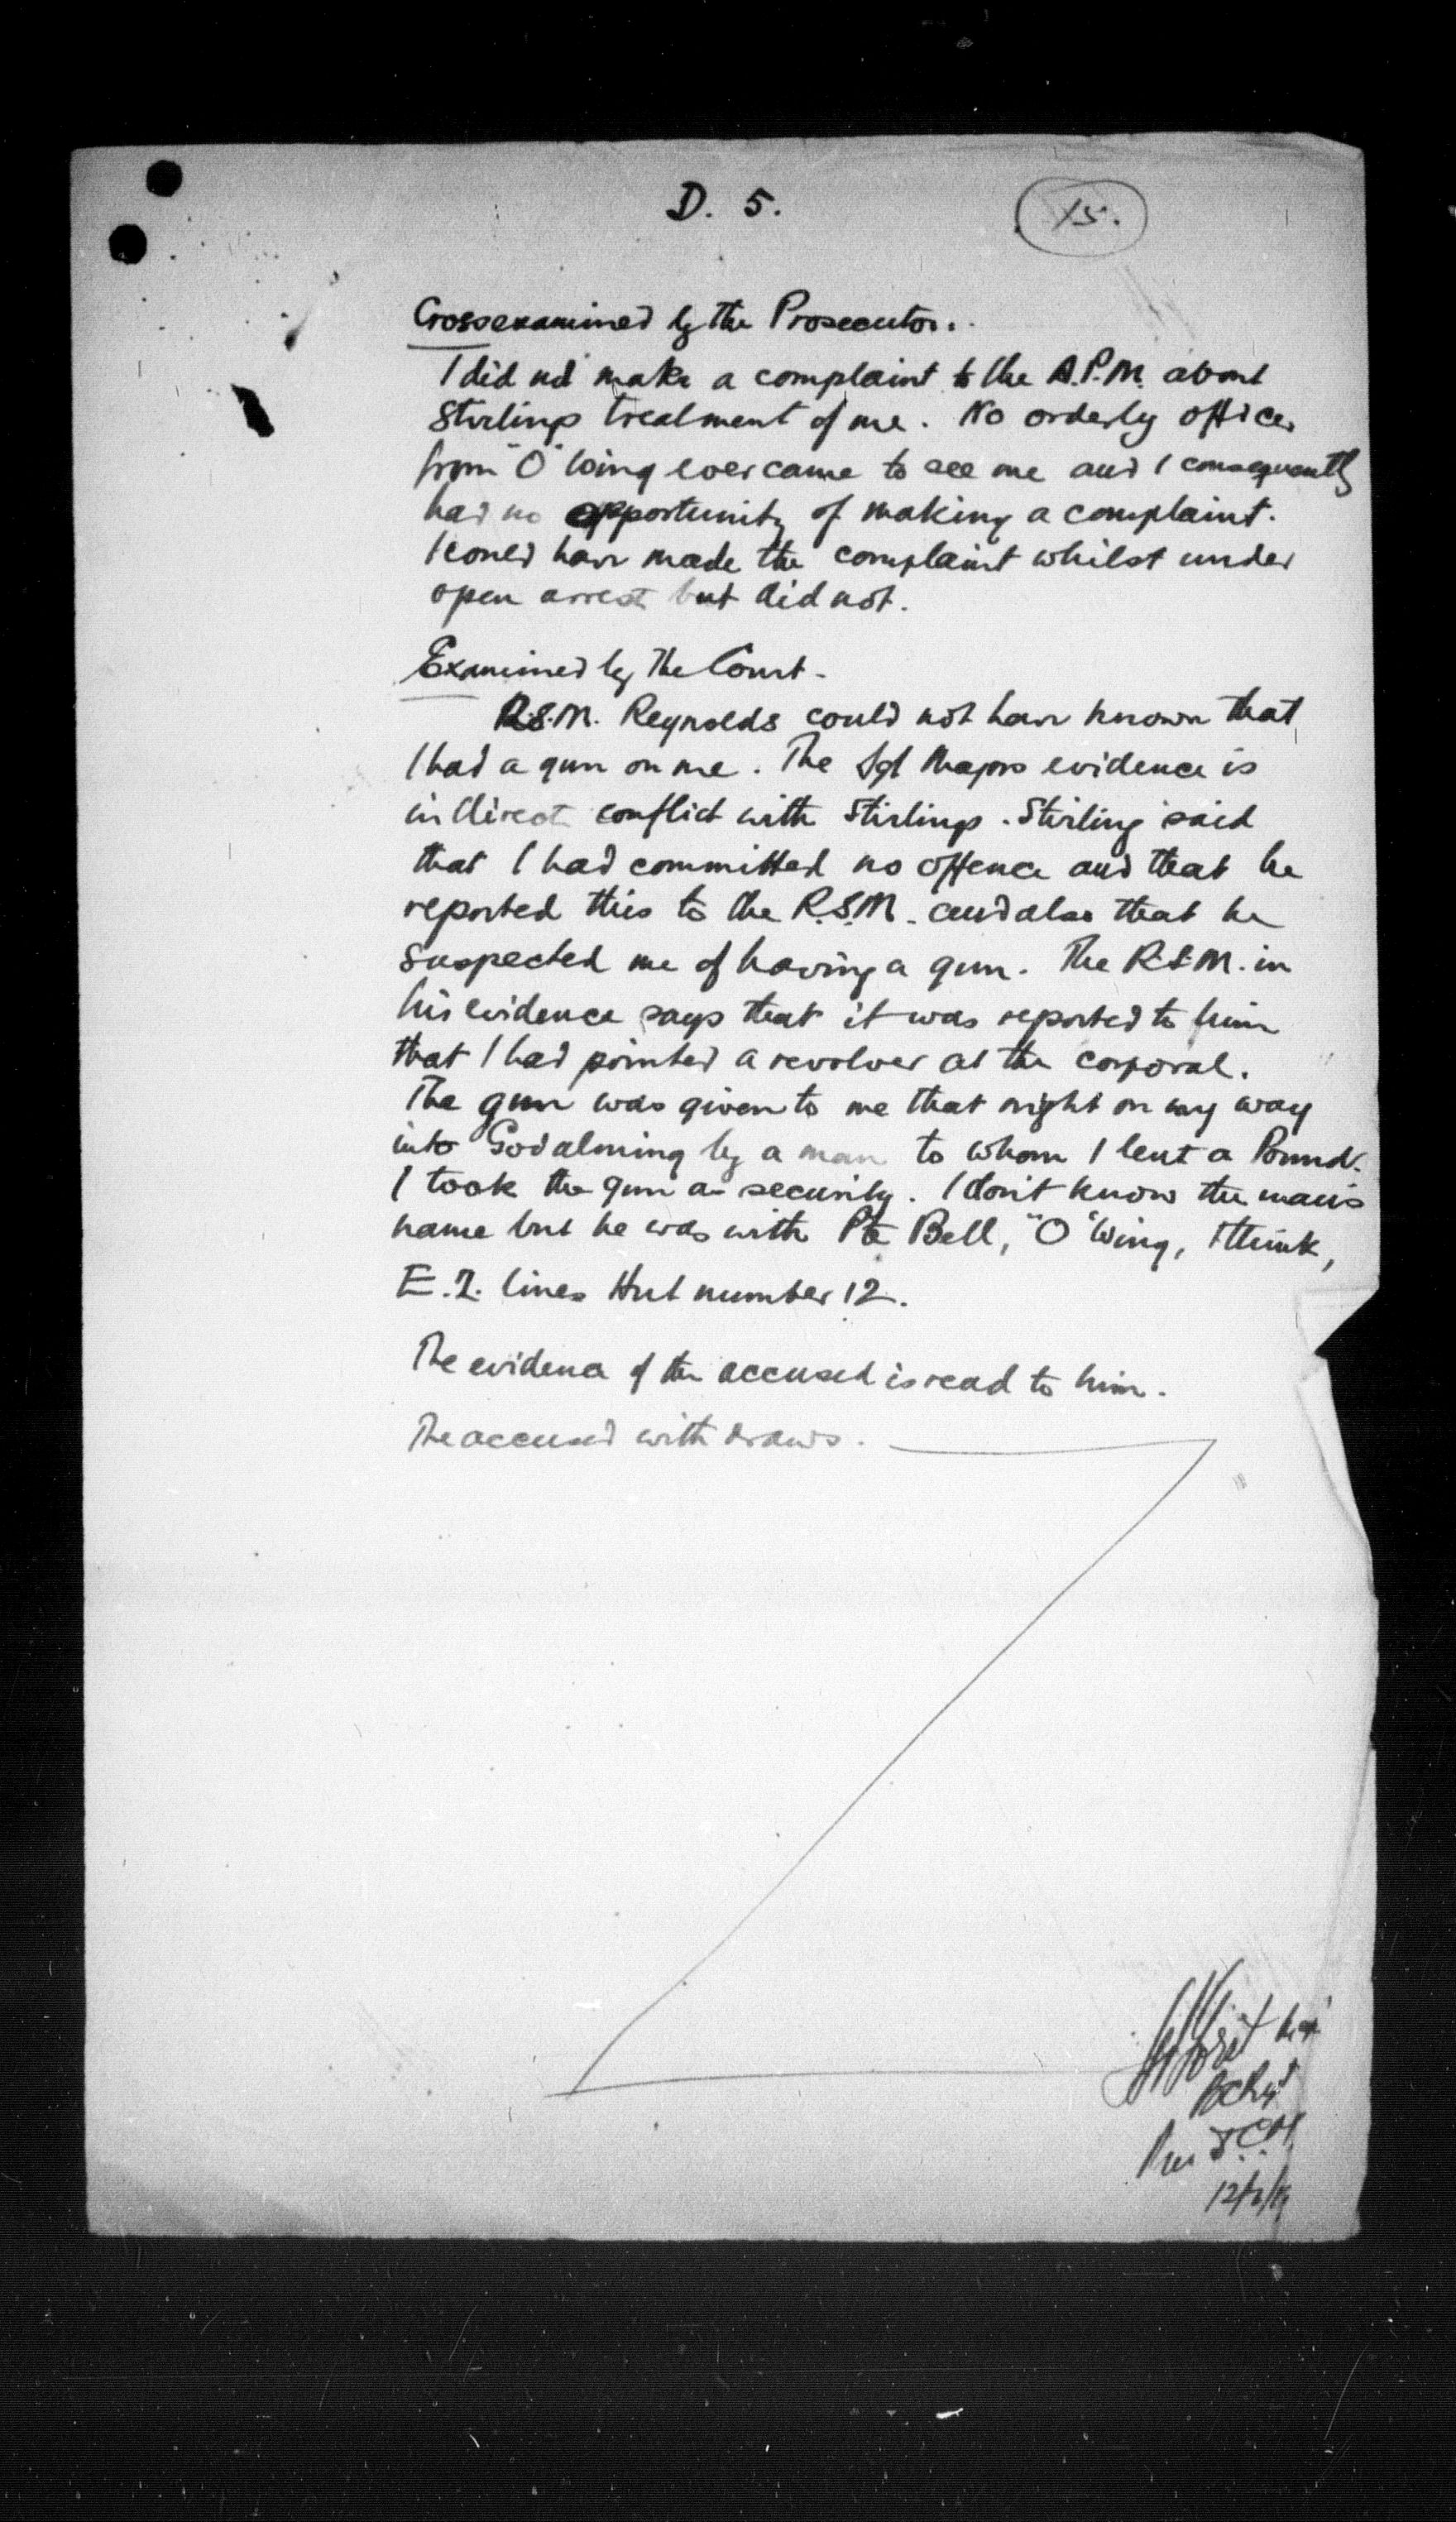 D. 5.
15.
Crossexamined by the Prosecutor.
I did not make a complaint to the A.P.M. about
Stirlings treatment of me. No orderly officer
from "O" Wing ever came to see me and I consequently
had no opportunity of making a complaint.
I could have made the complaint whilst under
open arrest but did not.
Examined by the Court.
R.S.M. Reynolds could not have known that
I had a gun on me. The Sgt Majors evidence is
in direct conflict with Stirlings. Stirling said
that I had committed no offence and that he
reported this to the R.S.M. and also that he
suspected me of having a gun. The R.S.M. in
his evidence says that it was reported to him
that I had pointed a revolver at the corporal.
The gun was given to me that night on my way
into Godalming by a man to whom I lent a Pound.
I took the gun as security. I don't know the man's
name but he was with Pte Bell, "O" Wing, I think,
E.I. lines Hut number 12.
The evidence of the accused is read to him.
The accused withdraws.